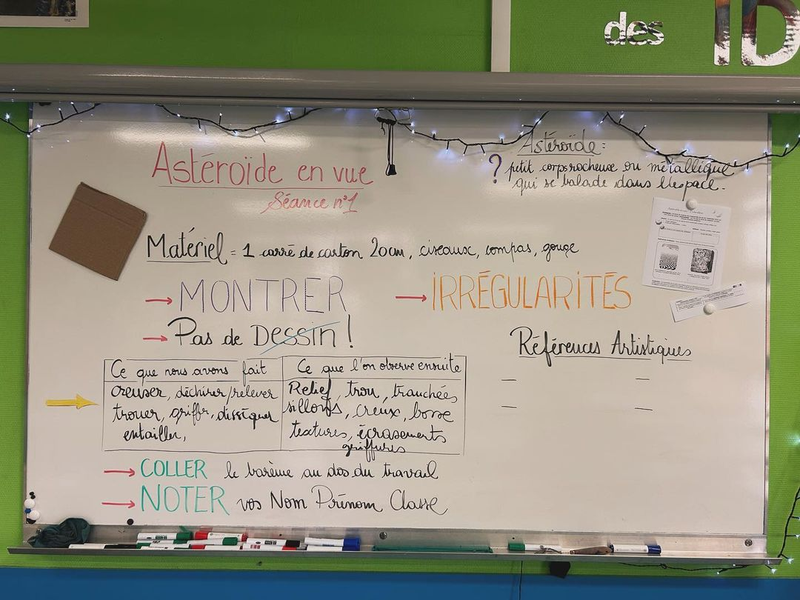 des ID
Astéroïde en vue
Séance n°1
Astéroïde :
? petit corps rocheux ou métallique
qui se balade dans l'espace.
Matériel = 1 carré de carton 20cm, ciseaux, compas, gouge
→ MONTRER → IRRÉGULARITÉS
→ Pas de Dessin !
Références Artistiques
Ce que nous avons fait
creuser, déchirer/relever
trouer, griffer, disséquer
entailler,
Ce que l'on observe ensuite
Relief, trou, tranchées
sillons, creux, bosse
textures, écrasements
griffures
→ COLLER le barème au dos du travail
→ NOTER vos Nom Prénom Classe